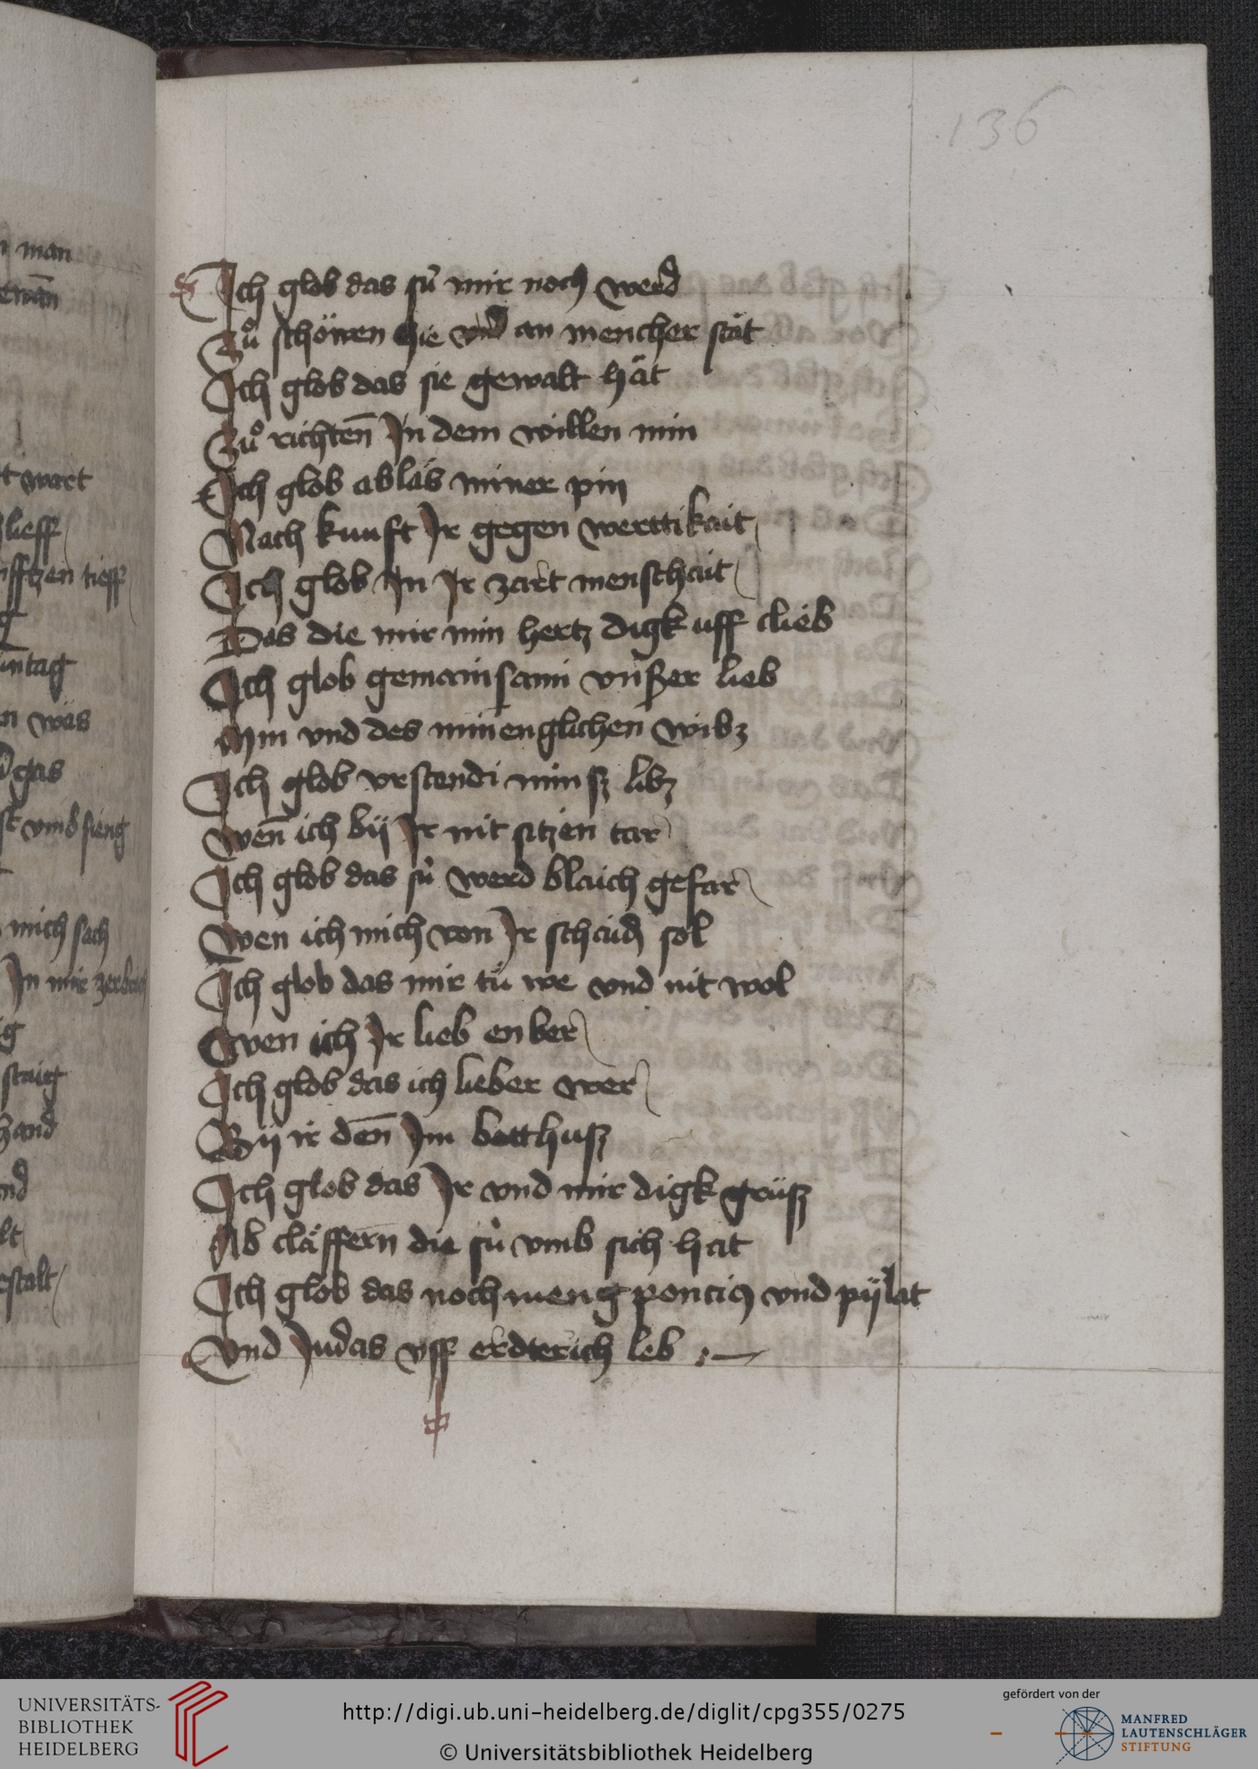 136
Ich glob das sú mir noch werd
Zů schöwen hie vnd an mencher stät
Ich glob das sie gewalt hät
Zů richten̄ In dem willen min
Ich glob abläs miner pin
Nach kunft Ir gegen werttikait
Ich glob In Ir zart menschait
Das die mir min hertz digk uff clieb
Ich glob gemainsami vnßer lieb
Min vnd des minenglichen wibz
Ich glob vrstendi minsz libz
wen̄ ich bÿ Ir nit sitzen tar
Ich glob das sú werd blaich gefar
wen ich mich von Ir schaid sol
Ich glob das mir tů we vnd nit wol
wen ich Ir lieb enber
Ich glob das ich lieber wer
Bÿ ir den̄ Im betthusz
Ich glob das Ir vnd mir digk grüsz
Ab cläffern die sú vmb sich hat
Ich glob das noch meng poncius vnd pÿlat
vnd Judas vff erdterich leb
n man
t wart
lieff
fftzen tieff
ntag
n was
gas
st vmb fieng
mich sach
In mir
staig
hand
stalt
UNIVERSITÄTS-
BIBLIOTHEK
HEIDELBERG
http://digi.ub.uni-heidelberg.de/diglit/cpg355/0275
© Universitätsbibliothek Heidelberg
gefördert von der
MANFRED
LAUTENSCHLÄGER
STIFTUNG